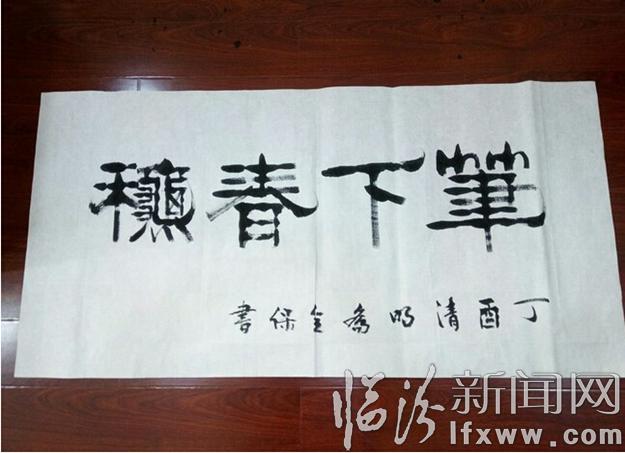 筆下春龝
丁酉清明喬全保書
临汾新闻网
lfxww.com